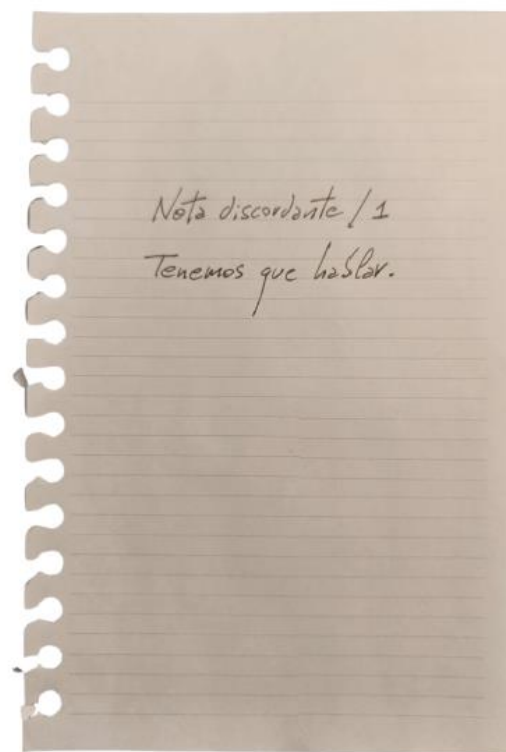 Nota discordante / 1
Tenemos que hablar.